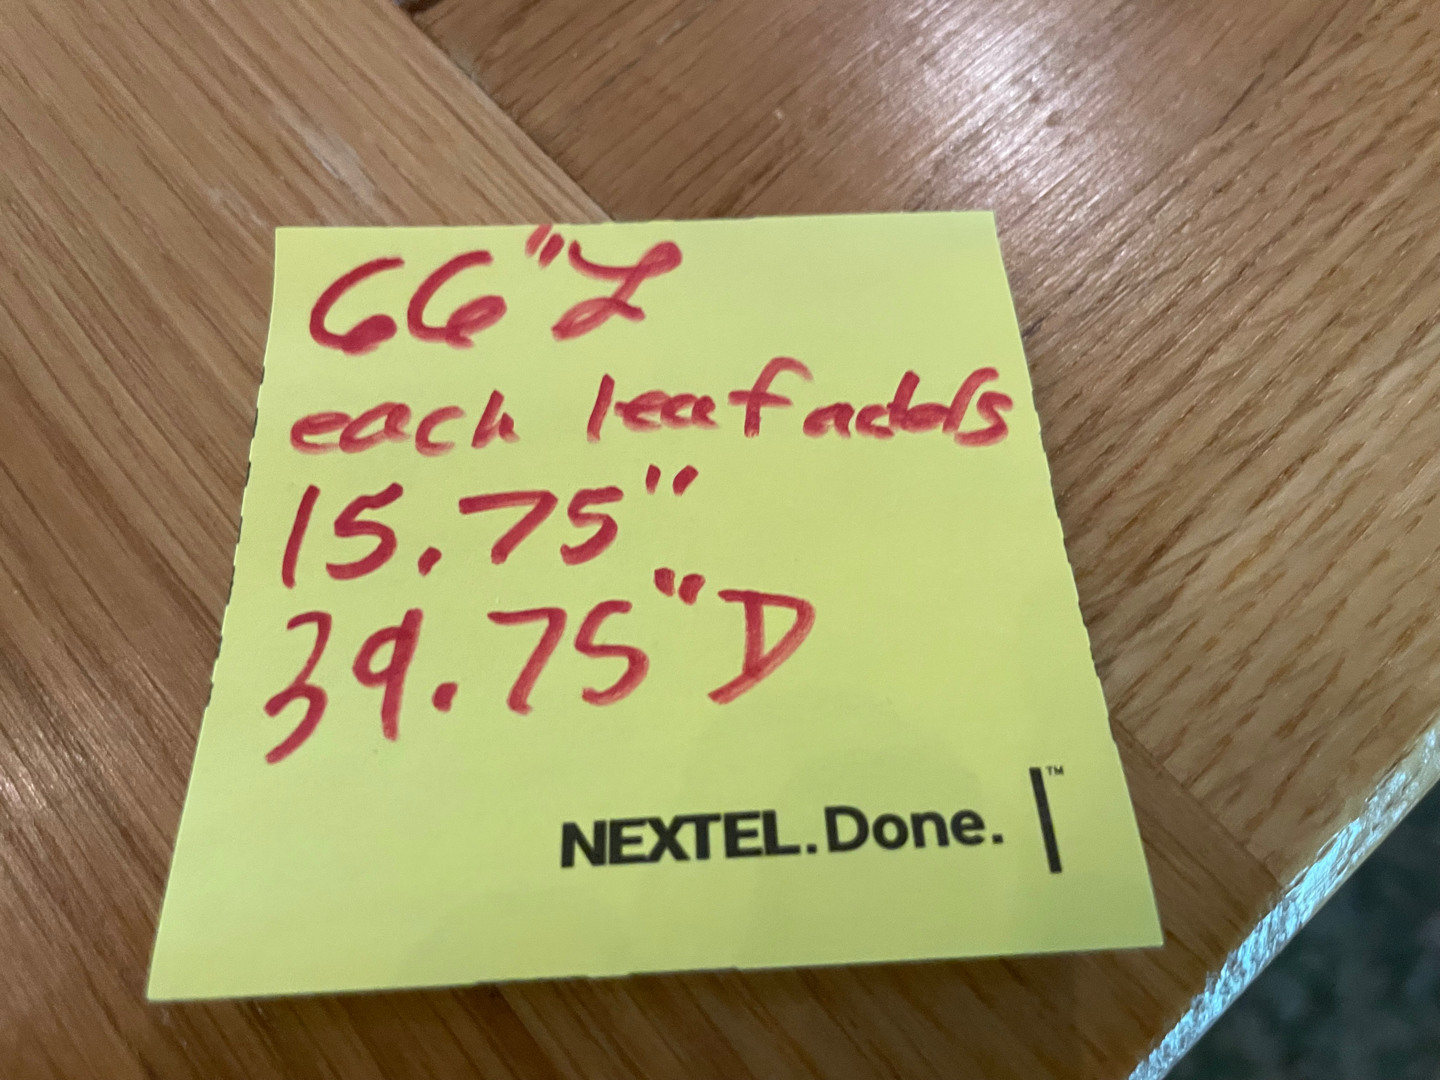 66" L
each leaf adds
15.75"
39.75" D
NEXTEL.Done. ™